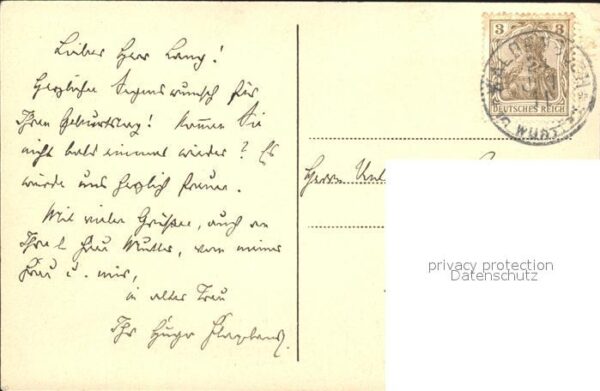 Lieber Herr Lang!
Herzlichen Segenswunsch für
Ihren Geburtstag! Kommen Sie
nicht bald einmal wieder? Es
würde uns herzlich freuen.
Mit vielen Grüßen, auch an
Ihre l. Frau Mutter, von meiner
Frau u. mir,
in alter Treue
Ihr Hugo
3 3
DEUTSCHES REICH
WALDENBUCH
WÜRTT.
Herrn
privacy protection
Datenschutz